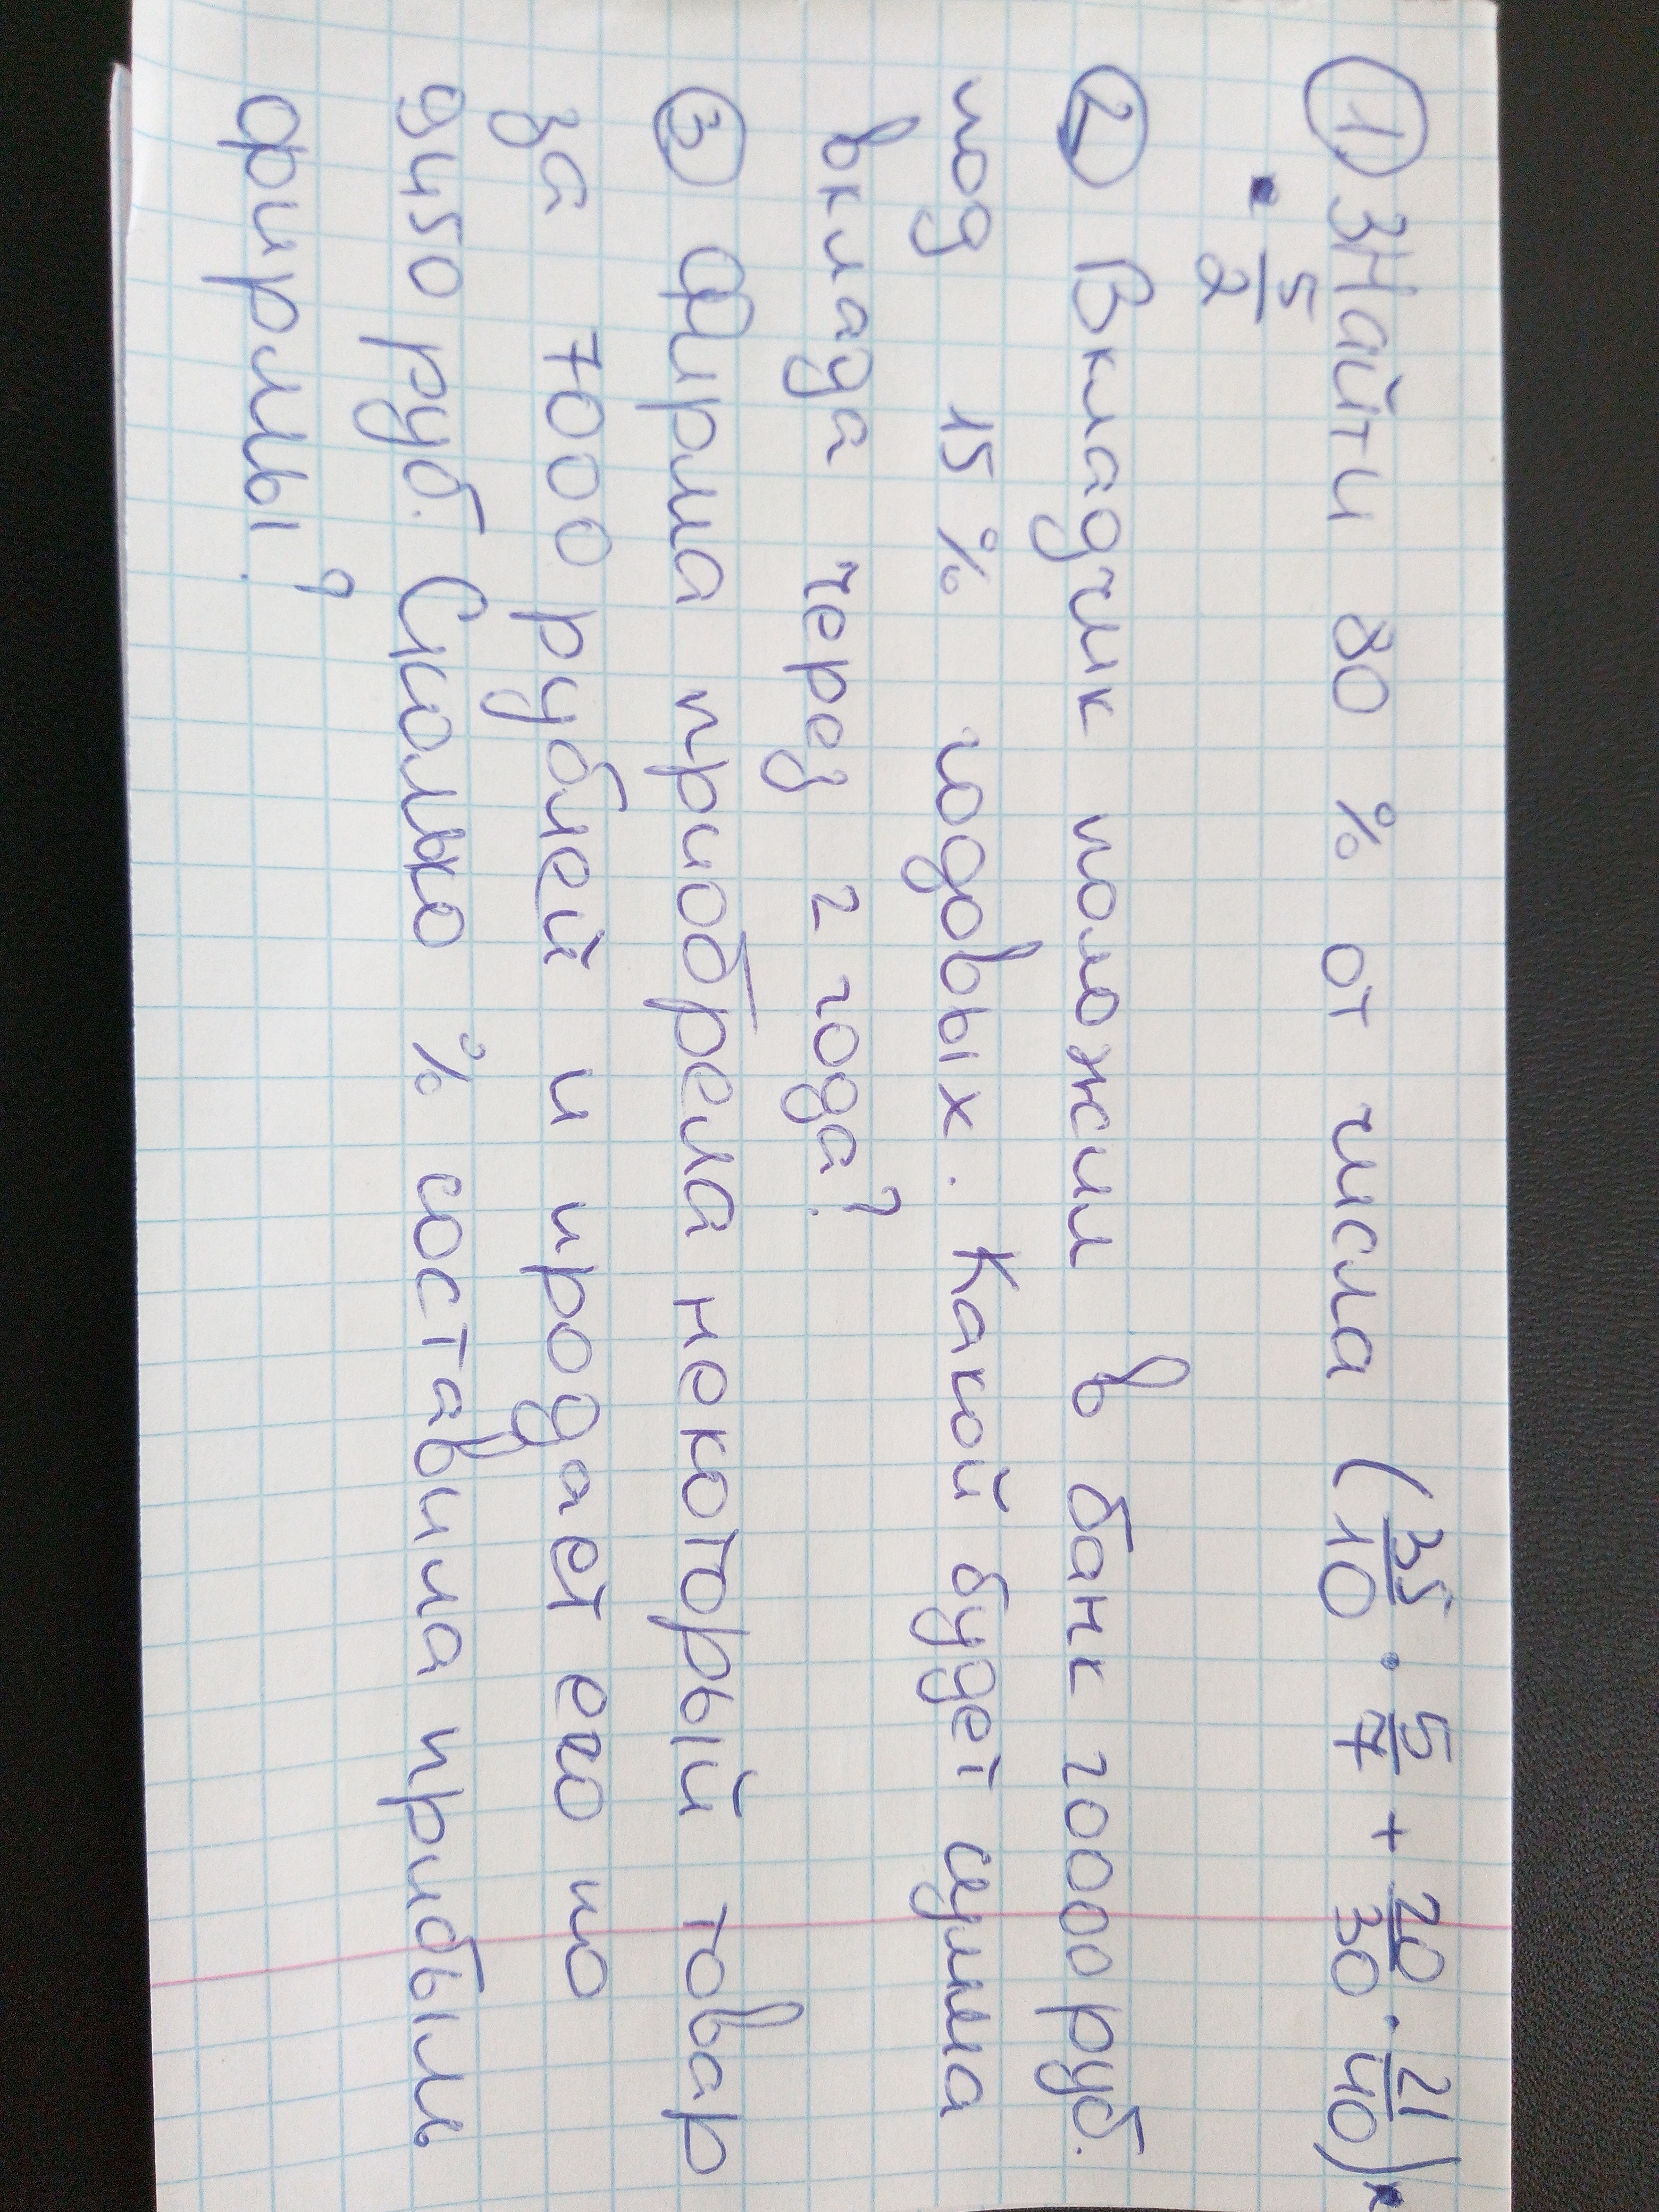 1. Найти 80 % от числа (35/10 · 5/7 + 20/30 · 21/40) ·
· 5/2
2 Вкладчик положил в банк 2000 руб.
под 15 % годовых. Какой будет сумма
вклада через 2 года?
3 Фирма приобрела некоторый товар
за 7000 рублей и продает его по
9450 руб. Сколько % составила прибыль
фирмы?